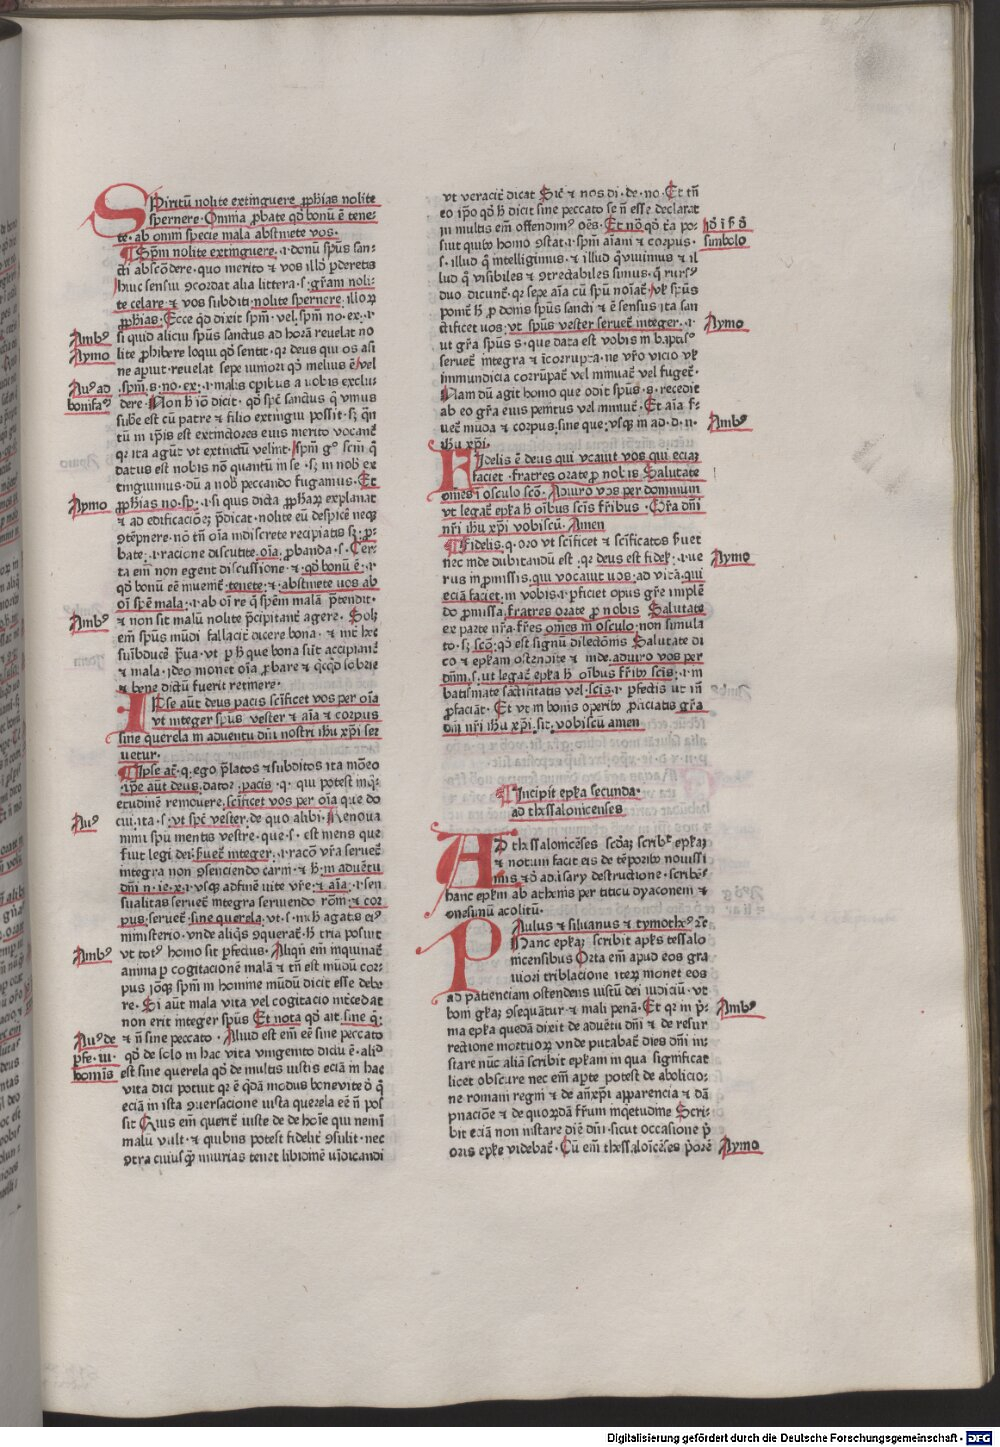 SPiritū nolite extinguere ꝓphīas nolite
spernere · Omnia ꝓbate qd̕ bonū ē tene-
te · ab omni specie mala abstinete vos ·
Spm̄ nolite extinguere · i · donū spūs san-
cti abscōdere · quo merito ⁊ vos illd̕ ꝑderetis
huic sensui ꝯcordat alia littera · s · grām noli-
te celare · ⁊ vos subditi · nolite spernere · illoꝝ
ꝓphīas · Ecce qd̕ dixit spm̄ · vel · spm̄ no · ex · i ·
Ambꝰ
si quid alicui spūs sanctus ad horā reuelat no
Aymo
lite ꝓhibere loqui qd̕ sentit · qꝛ deus qui os asi
ne aꝑuit · reuelat sepe iuniori qd̕ melius ē · vel
Auꝰ ad
spm̄ · s · no · ex · i · malis oꝑibus a uobis exclu
bonifaꝰ
dere · Non h̄ iō dicit · qd̕ spc̄ sanctus q̄ vnius
sub̄e est cū patre ⁊ filio extingui possit · sꝫ qn̄
tū in ip̄is est extinctores eius merito vocant̄
qꝛ ita agūt vt extinctū velint · spm̄ gͦ scm̄ q̄
datus est nobis nō quantū in se · sꝫ in nob̄ ex
tinguimus · dū a nob̄ peccando fugamus · Et
Aymo
ꝓphīas no · sp · i · si quis dicta ꝓphaꝝ explanat
⁊ ad edificacionē p̄dicat · nolite eū despicē neqꝫ
ꝯtēpnere · nō tn̄ oīa indiscrete recipiatis sꝫ · ꝓ-
bate · i · racione discutite · oīa · ꝓbanda · s · Cer-
ta em̄ non egent discussione · ⁊ · qd̕ bonū ē · i ·
qd̕ bonū eē inuenit̄ · tenete · ⁊ · abstinete uos ab
oī spē mala · i · ab oī re q̄ spēm malā p̄tendit ·
Ambꝰ
⁊ non sit malū nolite p̄cipitant̄ agere · Solꝫ
em̄ spūs mūdi fallacit̄ dicere bona · ⁊ int̄ hec
subīducē p̄ua · vt ꝑ h̄ que bona sūt accipiant̄
⁊ mala · ideo monet oīa ꝓbare ⁊ qcqd̕
⁊ bene dictū fuerit retinere ·
IPse aūt deus pacis scīficet vos per oīa
vt integer spūs vester ⁊ aīa ⁊ corpus
sine querela in aduentu dn̄i nostri ihū xp̄i ser
uetur ·
Ipse at̄ · q · ego p̄latos ⁊ subditos ita mōeo
ip̄e aūt deus · dator · pacis · q · qui potest inq̄-
etudinē remouere · scīficet vos per oīa que do
Auꝰ
cui · ita · s · vt spc̄ vester · de quo alibi · Renoua
mini spū mentis vestre · que · s · est mens que
s̄uit legi dei · s̄uet̄ integer · i · racō vr̄a seruet̄
integra non ꝯsenciendo carni · ⁊ h̄ · in aduētu
dn̄i n · ie · x · i · vsqꝫ ad finē uite vr̄e · ⁊ aīa · i · sen
sualitas seruet̄ integra seruiendo rōni · ⁊ cor
pus · seruet̄ · sine querela · vt · s · in h̄ agatis eiꝰ
ministerio · vnde aliq̄s ꝯquerat̄ · h̄ tria posuit
Ambꝰ
vt totꝰ homo sit ꝑfectus · Aliqn̄ em̄ inquinat̄
anima ꝑ cogitacionē malā ⁊ tn̄ est mūdū cor-
pus iōqꝫ spm̄ in homine mūdū dicit esse debe
re · Si aūt mala vita vel cogitacio intcedat
non erit integer spūs Et nota qd̕ ait · sine q̄ ·
Auꝰ de
⁊ n̄ sine peccato · Aliud est em̄ eē sine peccato
ꝑfe · iu ·
qd̕ de solo in hac vita vnigenito dictū ē · aliꝰ
hominis
est sine querela qd̕ de multis iustis eciā in hac
vita dici potuit qꝛ ē qdā modus bone vite d̕ q̄
eciā in ista ꝯuersacione iusta querela eē n̄ pos
sit · Quis em̄ querit̄ iuste de de hoīe qui nemi
malū vult · ⁊ quibus potest fidelit̄ ꝯsulit · nec
ꝯtra cuiusqꝫ iniurias tenet libidinē vīdicandi
vt veracit̄ dicat Sic̄ ⁊ nos di · de · no · Et tn̄
eo ip̄o qd̕ h̄ dicit sine peccato se n̄ esse declarat
in multis em̄ offendimꝰ oēs · Et nō qd̕ t̄ia po-
suit quibꝰ homo ꝯstat · i · spm̄ aīam ⁊ corpus ·
simbolo
s · illud q̄ intelligimus · ⁊ illud q̄ viuimus ⁊ il
lud q̄ visibiles ⁊ ꝯtrectabiles simus · q̄ rursꝰ
duo dicunt̄ · qꝛ sepe aīa cū spū noīat̄ · vl̕ spūs
ponit̄ h̄ ꝑ donis spūs sancti ⁊ ē sensus ita san
ctificet uos · vt spūs vester seruet̄ integer · i ·
Aymo
ut grā spūs s · que data est vobis in baptisꝰ
seruet̄ integra ⁊ īcorrupta · ne vr̄o vicio vl̕
immundicia corrūpat̄ vel minuat̄ vel fuget̄ ·
Nam dū agit homo que odit spūs · s · recedit
ab eo grā eius penitus vel minuit̄ · Et aīa s̄-
uet̄ mūda ⁊ corpus · sine que · vsqꝫ in ad · d · n ·
Ambꝰ
ihū xp̄i ·
FIdelis ē deus qui vcauit vos qui eciaꝫ
faciet · fratres orate ꝓ nobis Salutate
om̄es ī osculo scō · Adiuro vos per dominum
vt legat̄ epl̕a h̄ oībus scīs fr̄ibus · Grā dn̄i
nr̄i ihū xp̄i vobiscū · Amen
Fidelis · q · oro vt scīficet ⁊ scīficatos s̄uet
nec inde dubitandū est · qꝛ deus est fidel̕ · i · ue
Aymo
rus in ꝓmissis · qui vocauit uos · ad vitā · qui
eciā faciet · in vobis · i · ꝑficiet opus grē implē
do ꝓmissa · fratres orate ꝓ nobis Salutate
ex parte nr̄a · fr̄es om̄es in osculo · non simula
to · sꝫ · scō · qd̕ est signū dilectiōis Salutate di
co ⁊ epl̕am ostendite ⁊ inde · adiuro vos per
dn̄m · s · ut legat̄ epl̕a h̄ oībus fr̄ibꝫ scīs · i · in
batismate sactificatis vel · scīs · i · ꝑfectis ut in
ꝓfaciāt · Et vt in bonis operibꝫ ꝓficiatis grā
dn̄i nr̄i ihū xp̄i · sit · vobiscū amen
Incipit epl̕a secunda ·
ad thessalonicenses
AD thessalonicēses scdām scrib̄t epl̕aꝫ
⁊ notum facit eis de tēporibꝫ nouissi
mis ⁊ d̕ aduersarij destructione · scrib̄ꝰ
hanc epl̕am ab athenis per titicū dyaconem ⁊
onesimū acolitū ·
PAulus ⁊ siluanus ⁊ tymotheꝰ ⁊c̄
Hanc epl̕aꝫ scribit apl̕s tessalo
nicensibus Orta em̄ apud eos gra
uiori triblacione iteꝝ monet eos
ad patienciam ostendens iustū dei iudiciū · vt
boni gl̕iaꝫ ꝯsequātur · ⁊ mali penā · Et qꝛ in p̄-
Ambꝰ
ma epl̕a quedā dixit de aduētu dn̄i ⁊ de resur
rectione mortuoꝝ vnde putabāt dies dn̄i in-
stare nūc aliā scribit epl̕am in qua significat
licet obscure nec em̄ aꝑte potest de abolicio-
ne romani regni ⁊ de antixp̄i apparencia ⁊ dā
pnaciōe ⁊ de quoꝝdā fr̄um inq̄etudine Scri-
bit eciā non instare diē dn̄i · sicut occasione p̄
oris epl̕e videbat̄ · Cū em̄ thessalonicēses p̄orē
Aymo
Digitalisierung gefördert durch die Deutsche Forschungsgemeinschaft · DFG